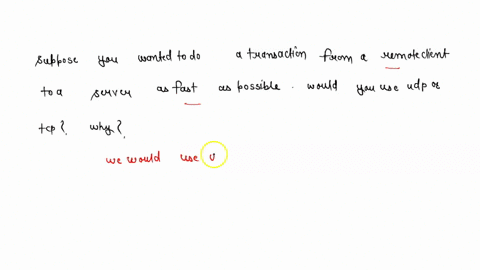 suppose you wanted to do a transaction from a remote client
to a server as fast as possible. would you use udp or
tcp?. why?
we would use u